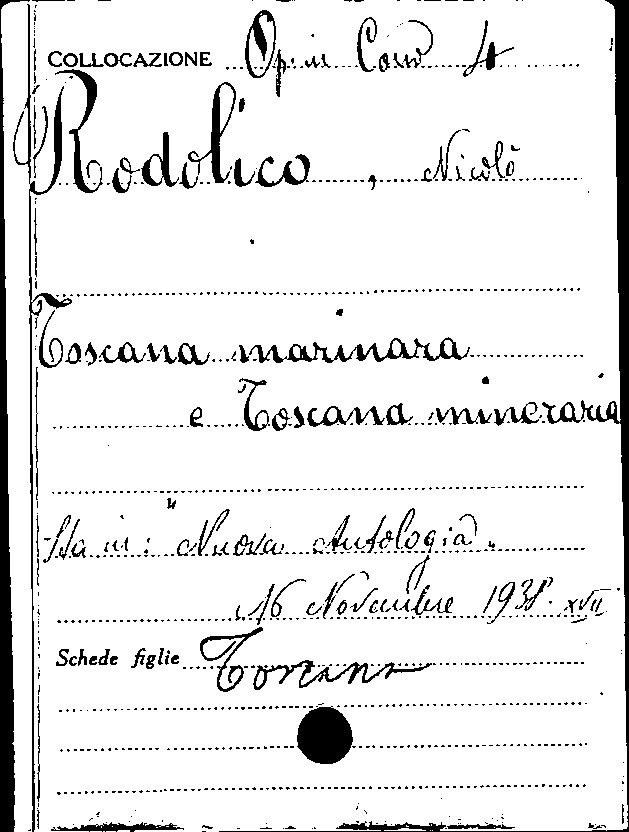 COLLOCAZIONE Op. in Cors 4
Rodolico, Nicolò
Toscana marinara
e Toscana mineraria
Sta in: "Nuova Antologia"
16 Novembre 1938. XVII
Schede figlie Toscana